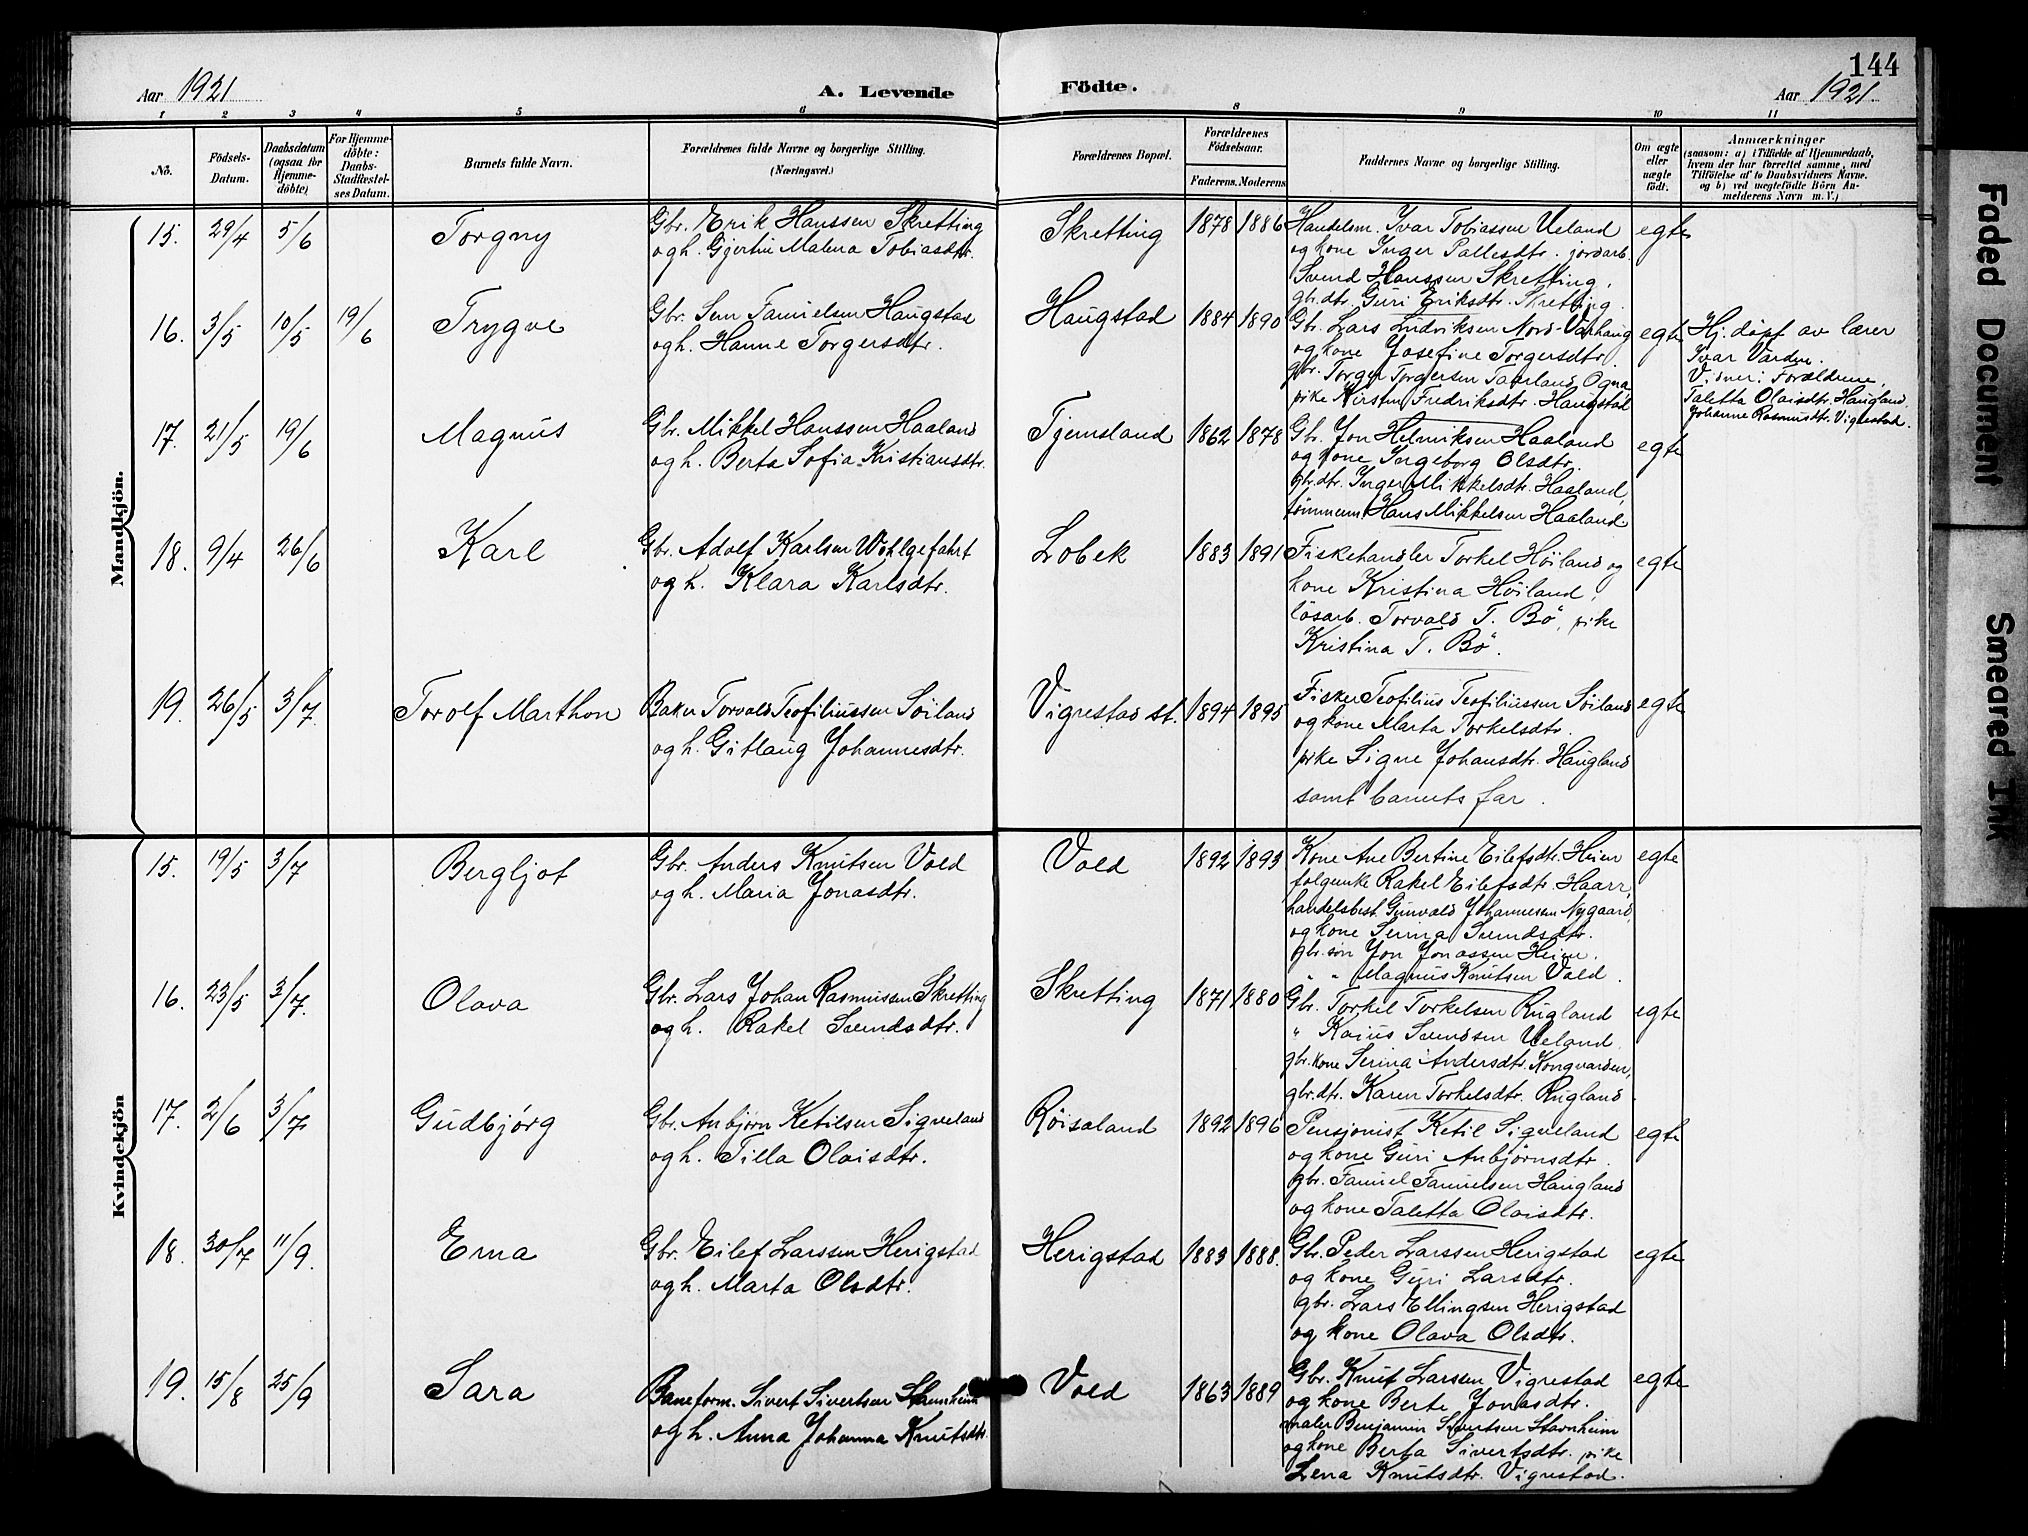 144
Aar 1921
A. Levende
Födte.
Aar 1921.
1 2 3 4 5 6 8 9 10 11
No.
Födsels-
Datum.
Daabsdatum
(ogsaa for
Hjemme-
döbte)
For Hjemme-
döbte:
Daabs-
Stadfæstel-
ses Datum.
Barnets fulde Navn.
Forældrenes fulde Navne og borgerlige Stilling.
(Næringsvei.)
Forældrenes Bopæl.
Forældrenes
Födselsaar.
Faderens. Moderens
Faddernes Navne og borgerlige Stilling.
Om ægte
eller
uægte
födt.
Anmærkninger
(saasom: a) i Tilfælde af Hjemmedaab,
hvem der har forrettet samme, med
Tilföielse af to Daabsvidners Navne.
og b) ved uægtefödte Börn An-
melderens Navn m. V.)
Mandkjön.
15. 29/4 5/6 Torgny
Gbr. Erik Hanssen Skretting
og h. Gjertin Malena Tobiasdtr.
Skretting 1878 1886
Handelsm. Ivar Tobiassen Ueland
og kone Inger Pallesdtr. jordarb.
Svend Hanssen Skretting,
gbr.dtr. Guri Eriksdtr. Skretting.
egte
16. 3/5 10/5 19/6 Trygve
Gbr. Sem Famielsen Haugstad
og h. Hanne Torgersdtr.
Haugstad 1884 1890
Gbr. Lars Ludviksen Nord-Varhaug
og kone Josefine Torgersdtr.
gbr. Torger Torgersen Taarland, Ogna
pike Kirsten Fredriksdtr. Haugstad
egte
Hj. döpt av lærer
Ivar Varden.
Vidner: Forældrene,
Taletta Olaisdtr. Haugland,
Johanne Rasmusdtr. Vigrestad.
17. 21/5 19/6 Magnus
Gbr. Mikkel Hanssen Haaland
og h. Berta Sofia Kristiansdtr.
Tjemsland 1862 1878
Gbr. Jon Helmiksen Haaland
og kone Ingeborg Olsdtr.
gbr.dtr. Inger Mikkelsdtr. Haaland,
tömmerm. Hans Mikkelsen Haaland
egte
18. 9/4 26/6 Karl
Gbr. Adolf Karlsen Wohlgefahrt
og h. Klara Karlsdtr.
Lobek 1883 1891
Fiskehandler Torkel Höiland og
kone Kristina Höiland,
lösarb. Torvald T. Bö, pike
Kristina T. Bö.
egte
19. 26/5 3/7. Torolf Marthon
Baker Torvald Teofiliussen Söiland
og h. Gitlaug Johannesdtr.
Vigrestad st. 1894 1895
Fisker Teofilius Teofiliussen Söiland
og kone Marta Torkelsdtr.
pike Signe Johansdtr. Haugland
samt barnets far.
egte
Kvindekjön
15. 19/5 3/7 Bergljot
Gbr. Anders Knutsen Vold
og h. Maria Jonasdtr.
Vold 1892 1893
Kone Ane Bertine Eilefsdtr. Heien
folgenke Rakel Eilefsdtr. Haarr,
handelsbest. Gunvald Johannesen Nygaard,
og kone Serina Svendsdtr.
gbr.sön Jon Jonassen Heien.
" " Magnus Knutsen Vold.
egte
16. 23/5 3/7. Olava
Gbr. Lars Johan Rasmussen Skretting
og h. Rakel Svendsdtr.
Skretting 1871 1880
Gbr. Torkel Torkelsen Rugland
" Kajus Svendsen Ueland.
gbr. kone Serina Andersdtr. Kongvarden,
gbr.dtr. Karen Torkelsdtr. Rugland.
egte
17. 2/6 3/7 Gudbjörg
Gbr. Anbjörn Ketilsen Sigveland
og h. Tilla Olaisdtr.
Röisaland 1892 1896
Pensjonist Ketil Sigveland
og kone Guri Anbjörnsdtr.
gbr. Famiel Famielsen Haugland
og kone Taletta Olaisdtr.
egte
18. 30/7 11/9. Erna
Gbr. Eilef Larssen Herigstad
og h. Marta Olsdtr.
Herigstad 1883 1888.
Gbr. Peder Larssen Herigstad
og kone Guri Larsdtr.
gbr. Lars Ellingsen Herigstad
og kone Olava Olsdtr.
egte
19. 15/8 25/9 Sara
Baneform. Sivert Sivertsen Stavnheim
og h. Anna Johanna Knutsdtr.
Vold 1863 1889
Gbr. Knut Larssen Vigrestad
og kone Berte Jonasdtr.
maler Benjamin Sivertsen Stavnheim
og kone Berta Sivertsdtr. pike
Lena Knutsdtr. Vigrestad.
egte
Faded Document
Smeared Ink